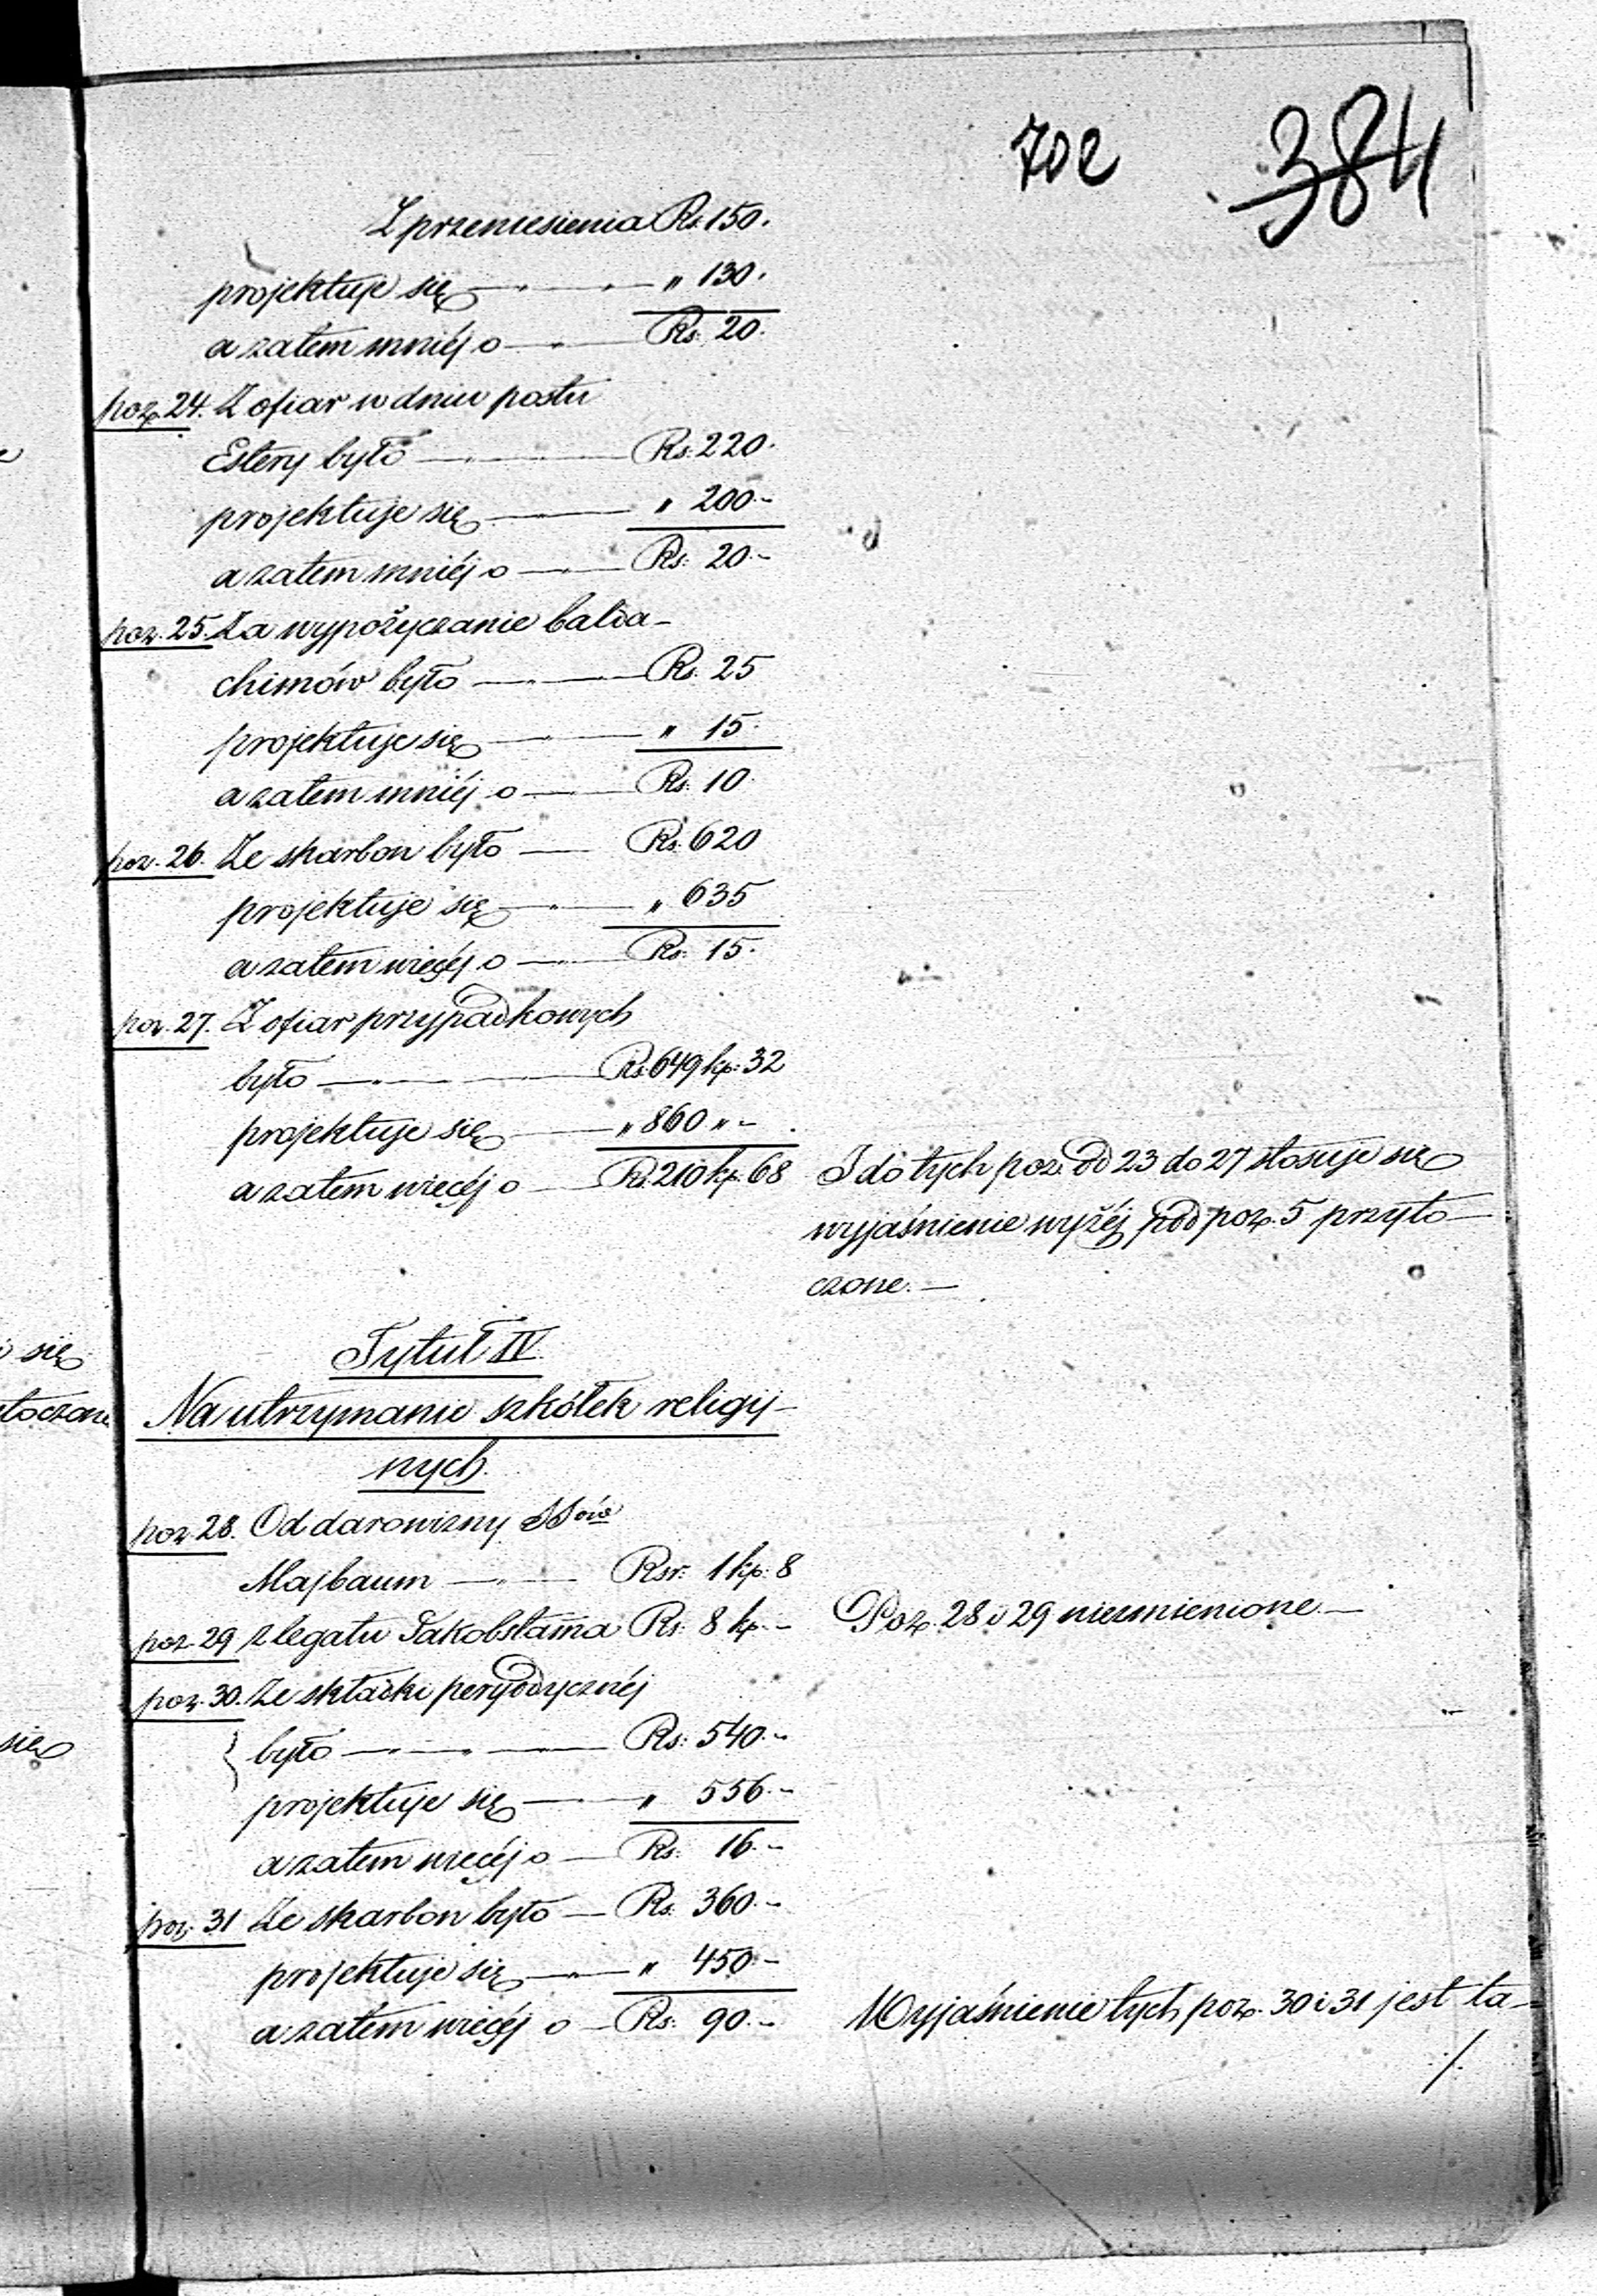 702 384
Z przeniesienia Rs. 150.
projektuje się — " — " 130.
a zatem mniéj o — " — Rs. 20.
poz. 24. Z ofiar w dniu postu
Estery było — " — Rs. 220.
projektuje się — " — " 200.-
a zatem mniéj o — " — Rs. 20.-
poz. 25. Za wypożyczanie balda-
chimów było — " — Rs. 25
projektuje się — " — " 15.
a zatem mniéj o — " — Rs. 10.
poz. 26. Ze skarbon było — Rs. 620
projektuje się — " — " 635
a zatem więcéj o — " — Rs. 15.
poz. 27. Z ofiar przypadkowych
było — " — Rs. 649 kp. 32
projektuje się — " 860 " -
a zatem więcéj o — Rs. 210 kp. 68
I do tych poz. od 23 do 27 stosuje się
wyjaśnienie wyżéj pod poz. 5 przyto-
czone. —
Tytuł IV.
Na utrzymanie szkółek religij-
nych.
poz. 28. Od darowizny SSów
Majbaum — " — Rsr. 1 kp. 8
poz. 29 z legatu Jakobstamma Rs. 8 kp. -
Poz. 28 i 29 niezmienione. —
poz. 30. Ze składki peryodycznéj
było — " — " — Rs. 540.-
projektuje się — " — " 556.-
a zatem więcéj o — Rs. 16.-
poz. 31 Ze skarbon było — Rs. 360.-
projektuje się — " — " 450.-
a zatem więcéj o — Rs. 90.-
Wyjaśnienie tych poz. 30 i 31 jest ta-
./.
się
toczone
się